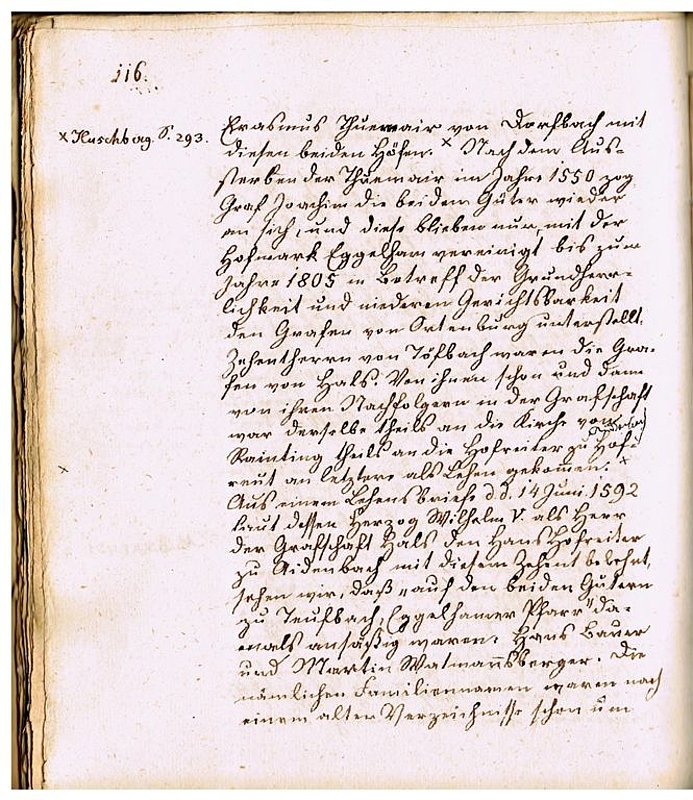 116.
x Huschberg. S. 293.
Erasmus Thuemair von Dorfbach mit
diesen beiden Höfen. x Nach dem Aus-
sterben der Thuemair im Jahre 1550 zog
Graf Joachim die beiden Güter wieder
an sich, und diese blieben nun mit der
Hofmark Eggelham vereinigt bis zum
Jahre 1805 in Betreff der Grundherr-
lichkeit und niederen Gerichtsbarkeit
den Grafen von Ortenburg unterstellt.
Zehentherrn von Töfbach waren die Gra-
fen von Hals. Von ihnen schon und dann
von ihren Nachfolgern in der Grafschaft
war derselbe theils an die Kirche von
Rainting theils an die Hofreiter zu Hof-
reut an letztere als Lehen gekommen. x
x
Aus einem Lehensbriefe d.d. 14 Juni 1592
laut dessen Herzog Wilhelm V. als Herr
der Grafschaft Hals den Hans Hofreiter
zu Aidenbach mit diesem Zehent belehnt,
sehen wir, daß „auf den beiden Gütern
zu Teufbach, Eggelhamer Pfarr" da-
mals ansäßig waren: Hans Bauer
und Martin Watmannsberger. Die
nämlichen Familiennamen waren nach
einem alten Verzeichnisse schon um